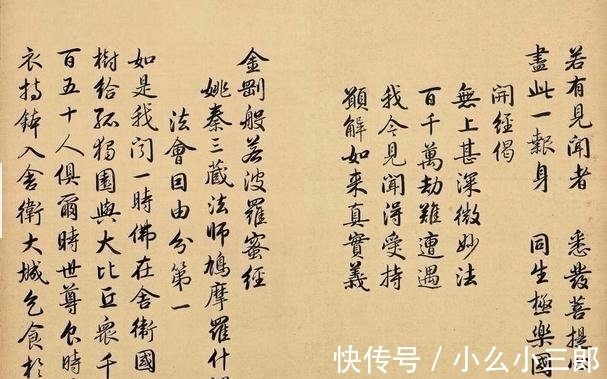 若有見聞者 悉發菩提
盡此一報身 同生極樂國
開經偈
無上甚深微妙法
百千萬劫難遭遇
我今見聞得受持
願解如来真實義
金剛般若波羅蜜經
姚秦三藏法師鳩摩羅什
法會因由分第一
如是我聞一時佛在舍衛國
樹給孤獨園與大比丘衆千
百五十人俱爾時世尊食時
衣持鉢入舍衛大城乞食於
快传号 / 小么小三郎